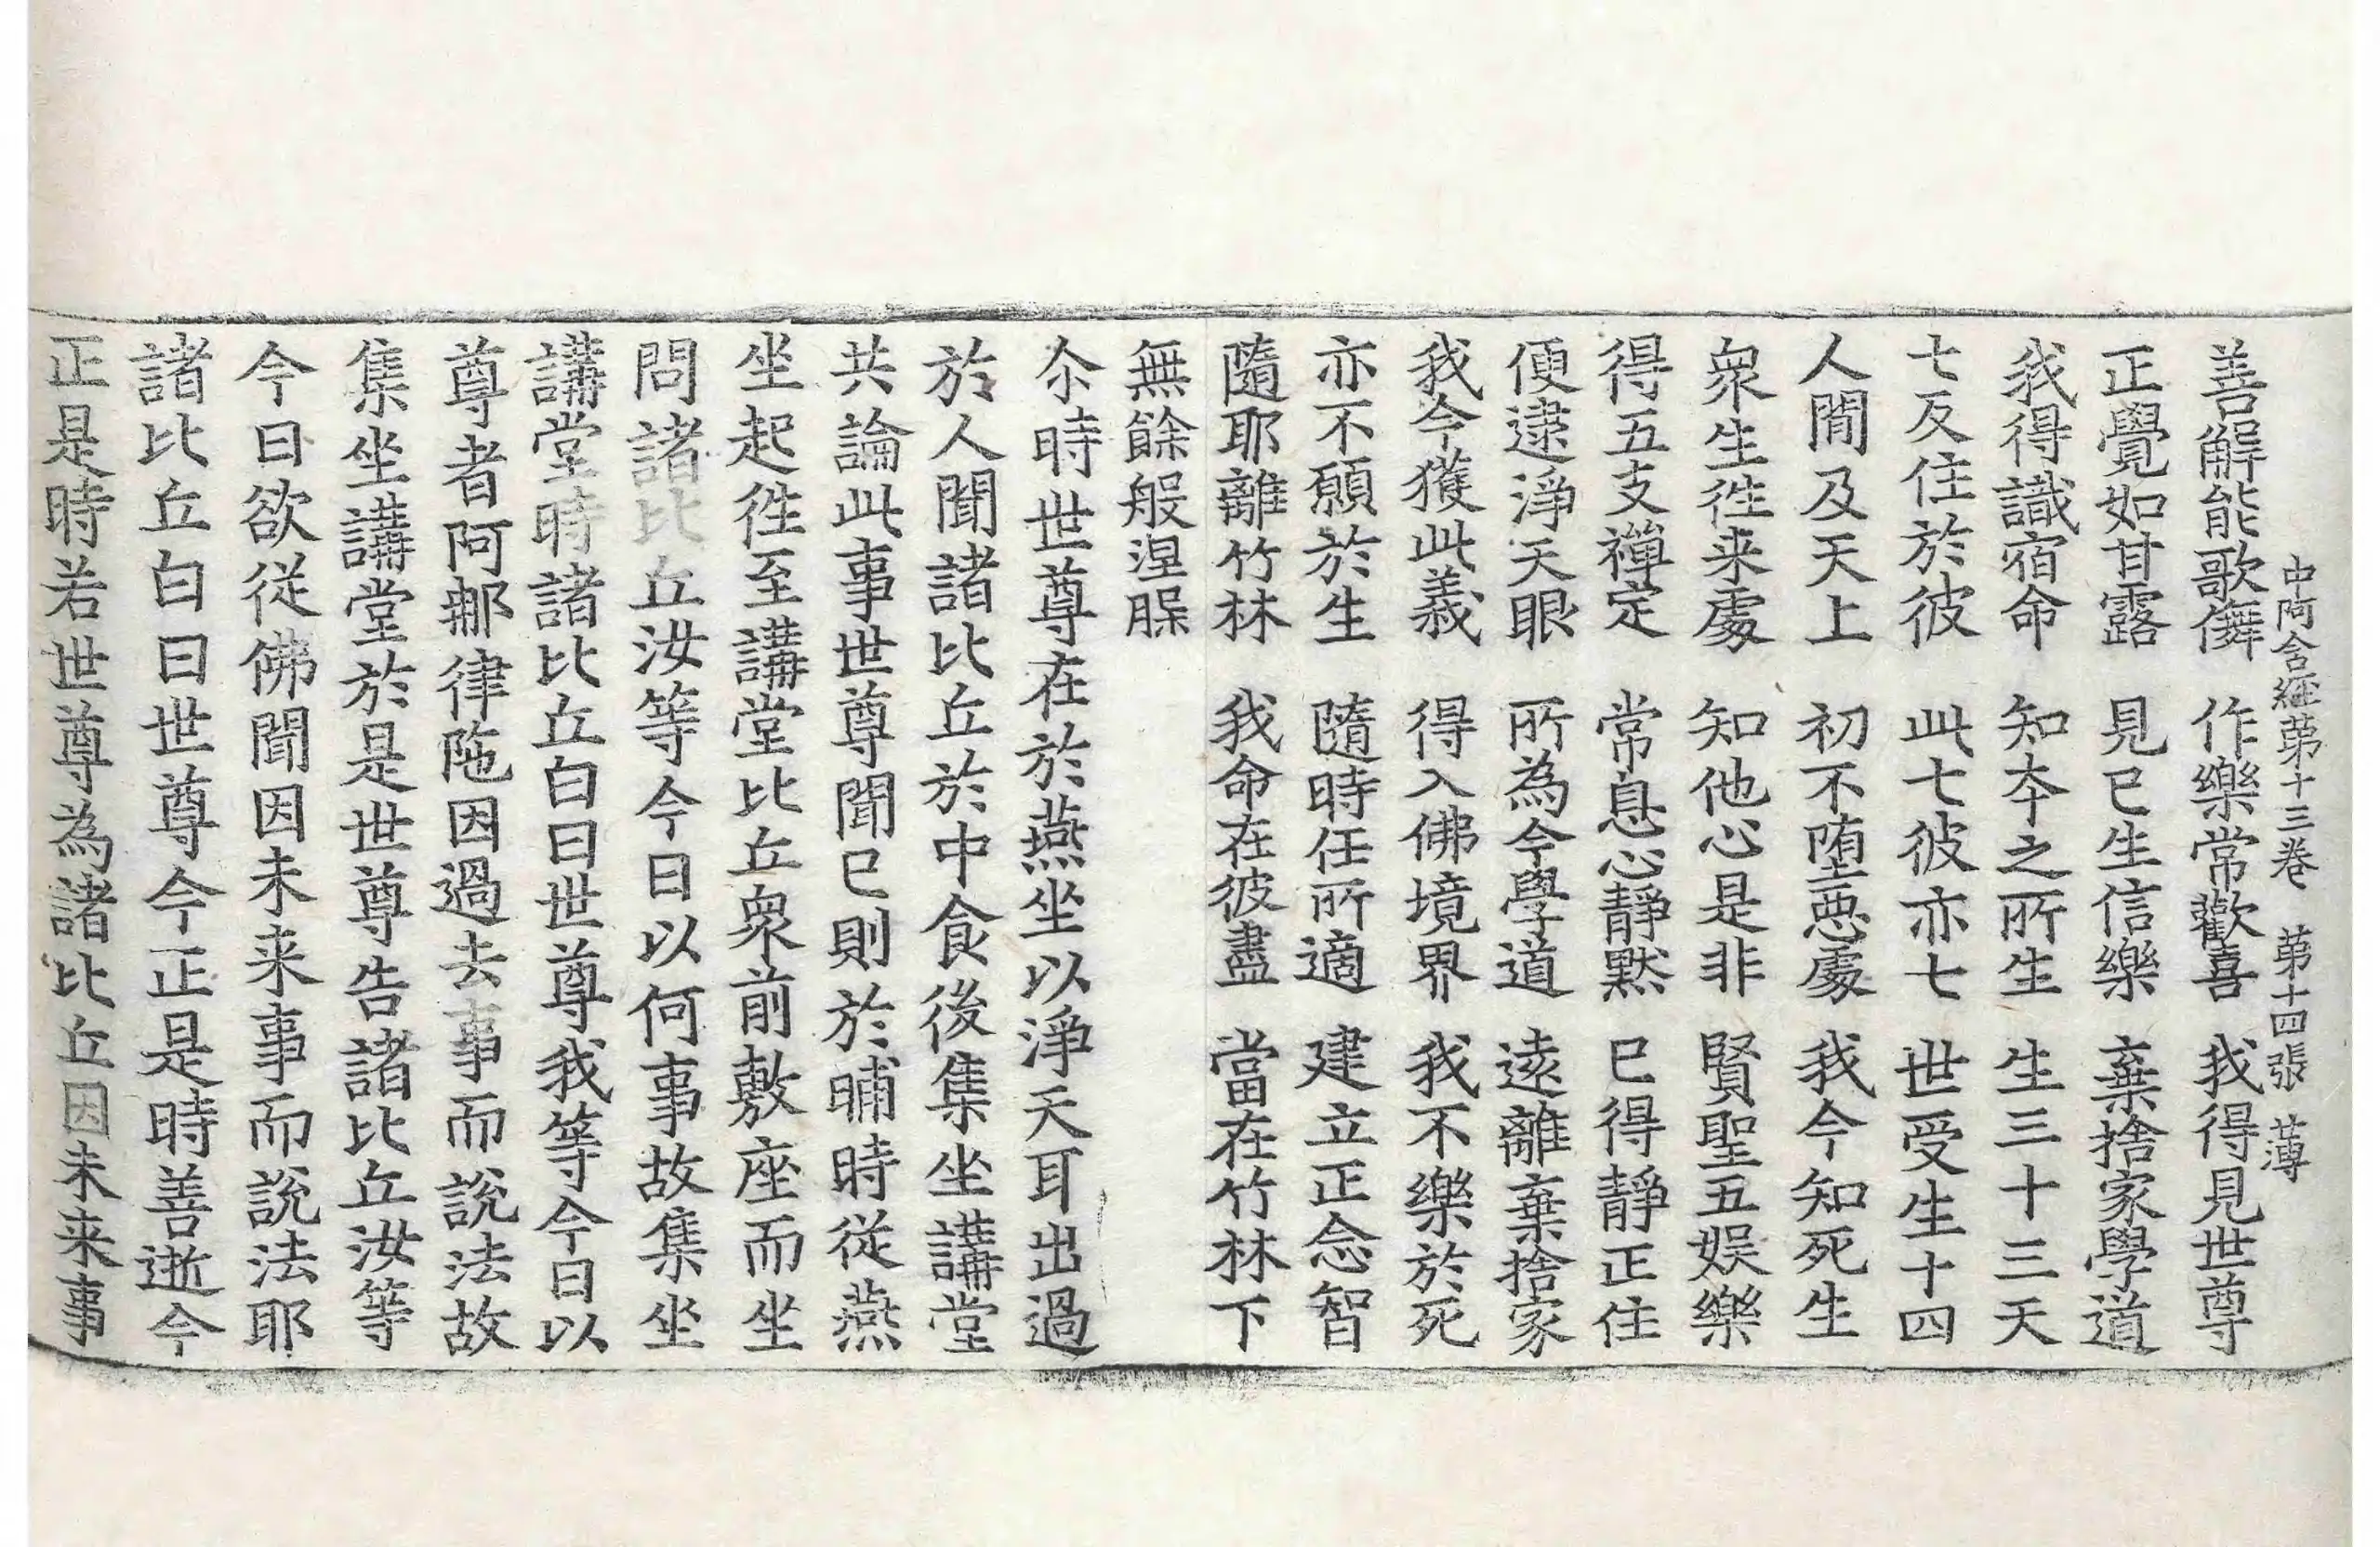 中阿含經第十三卷　第十四張　薄
善解能歌儛　作樂常歡喜　我得見世尊
正覺如甘露　見已生信樂　棄捨家學道
我得識宿命　知夲之所生　生三十三天
七反住於彼　此七彼亦七　世受生十四
人閒及天上　初不墮惡處　我今知死生
衆生徃来處　知他心是非　賢聖五娱樂
得五支禪定　常息心靜默　已得靜正住
便逮淨天眼　所為今學道　遠離棄捨家
我今獲此義　得入佛境界　我不樂於死
亦不願於生　隨時任所適　建立正念智
隨耶離竹林　我命在彼盡　當在竹林下
無餘般涅槃
尒時世尊在於燕坐以淨天耳出過
於人聞諸比丘於中食後集坐講堂
共論此事世尊聞已則於晡時從燕
坐起徃至講堂比丘衆前敷座而坐
問諸比丘汝等今日以何事故集坐
講堂時諸比丘白曰世尊我等今日以
尊者阿那律陁因過去事而說法故
集坐講堂於是世尊告諸比丘汝等
今日欲從佛聞因未来事而說法耶
諸比丘白曰世尊今正是時善逝今
正是時若世尊為諸比丘因未来事